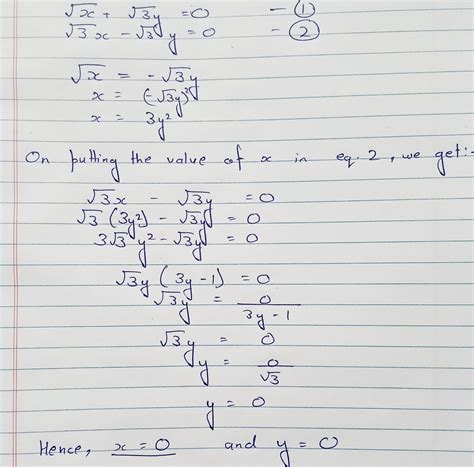 √x + √3y = 0 - ①
√3x - √3y = 0 - ②
√x = -√3y
x = (-√3y)²
x = 3y²
On putting the value of x in eq. 2, we get:-
√3x - √3y = 0
√3(3y²) - √3y = 0
3√3y² - √3y = 0
√3y (3y-1) = 0
√3y = 0/3y-1
√3y = 0
y = 0/√3
y = 0
Hence, x = 0 and y = 0